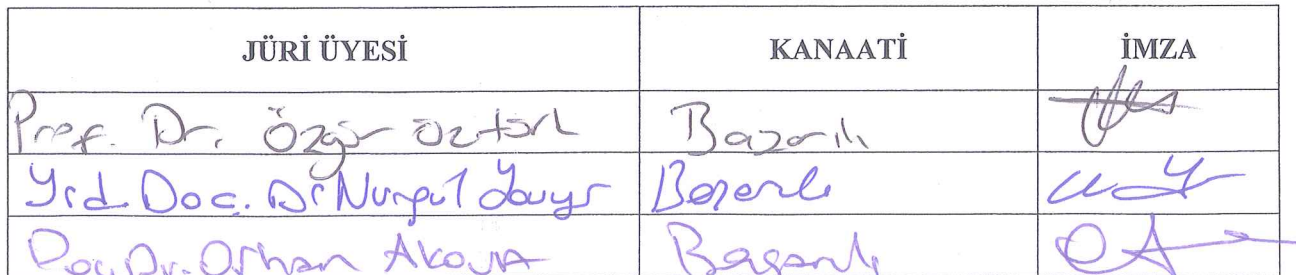 JÜRİ ÜYESİ KANAATİ İMZA
Prof. Dr. Özgür Öztürk Başarılı
Yrd. Doç. Dr Nurgül Başarılı
Doç. Dr. Orhan Akova Başarılı